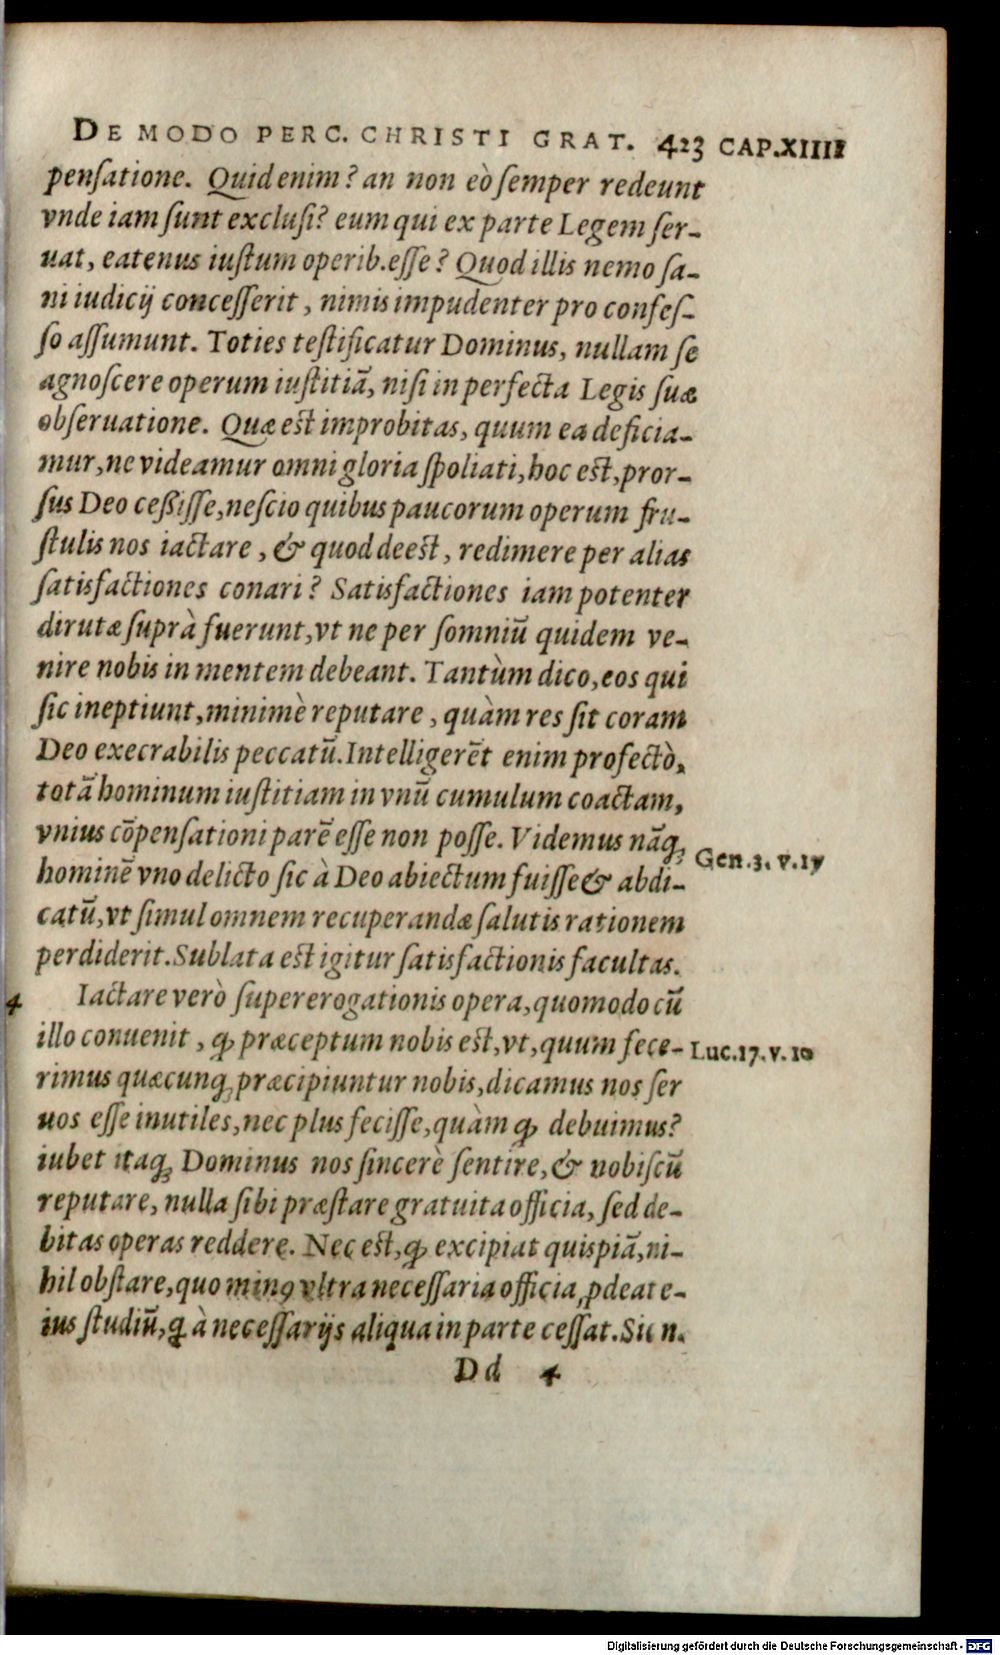 DE MODO PERC. CHRISTI GRAT. 423 CAP.XIIII
pensatione. Quid enim? an non eò semper redeunt
vnde iam sunt exclusi? eum qui ex parte Legem ser-
uat, eatenus iustum operib.esse? Quod illis nemo sa-
ni iudicij concesserit, nimis impudenter pro confes-
so assumunt. Toties testificatur Dominus, nullam se
agnoscere operum iustitiā, nisi in perfecta Legis suæ
obseruatione. Quæ est improbitas, quum ea deficia-
mur, ne videamur omni gloria spoliati, hoc est, pror-
sus Deo ceßisse, nescio quibus paucorum operum fru-
stulis nos iactare, & quod deest, redimere per alias
satisfactiones conari? Satisfactiones iam potenter
dirutæ suprà fuerunt, vt ne per somniū quidem ve-
nire nobis in mentem debeant. Tantùm dico, eos qui
sic ineptiunt, minimè reputare, quàm res sit coram
Deo execrabilis peccatū. Intelligerēt enim profectò,
totā hominum iustitiam in vnū cumulum coactam,
vnius cōpensationi parē esse non posse. Videmus nāq;
Gen.3. v.17
hominē vno delicto sic à Deo abiectum fuisse & abdi-
catū, vt simul omnem recuperandæ salutis rationem
perdiderit. Sublata est igitur satisfactionis facultas.
4 Iactare verò supererogationis opera, quomodo cū
illo conuenit, ꝙ præceptum nobis est, vt, quum fece-
Luc.17. v. 10
rimus quæcunq; præcipiuntur nobis, dicamus nos ser
uos esse inutiles, nec plus fecisse, quàm ꝙ debuimus?
iubet itaq; Dominus nos sincerè sentire, & nobiscū
reputare, nulla sibi præstare gratuita officia, sed de-
bitas operas reddere. Nec est, ꝙ excipiat quispiā, ni-
hil obstare, quo minꝰ vltra necessaria officia ꝓdeat e-
ius studiū, ꝗ à necessarijs aliqua in parte cessat.
Dd 4
Digitalisierung gefördert durch die Deutsche Forschungsgemeinschaft - DFG